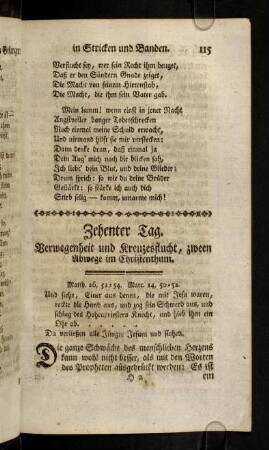 in Stricken und Banden. 115
Verflucht sey, wer sein Recht ihm beuget,
Daß er den Sündern Gnade zeiget,
Die Macht von seinem Hirtenstab,
Die Macht, die ihm sein Vater gab.
Mein Lamm! wenn einst in jener Nacht
Angstvoller banger Todesschrecken
Noch einmal meine Schuld erwacht,
Und niemand hilft sie mir verstecken:
Dann denke dran, daß einmal ja
Dein Aug' mich nach dir blicken sah,
Ich liebt' dein Blut, und deine Glieder:
Drum sprich: so wie du deine Brüder
Gestärkt: so stärke ich auch dich
Stirb selig — komm, umarme mich!
Zehenter Tag.
Verwegenheit und Kreuzesflucht, zween
Abwege im Christenthum.
Matth. 26, 51:54. Marc. 14, 50:52.
Und siehe, Einer aus denen, die mit Jesu waren,
reckte die Hand aus, und zog sein Schwerd aus, und
schlug des Hohenpriesters Knecht, und hieb ihm ein
Ohr ab.
Da verließen alle Jünger Jesum und flohen.
Die ganze Schwäche des menschlichen Herzens
kann wohl nicht besser, als mit den Worten
des Propheten ausgedrückt werden: Es ist
H 2 ein